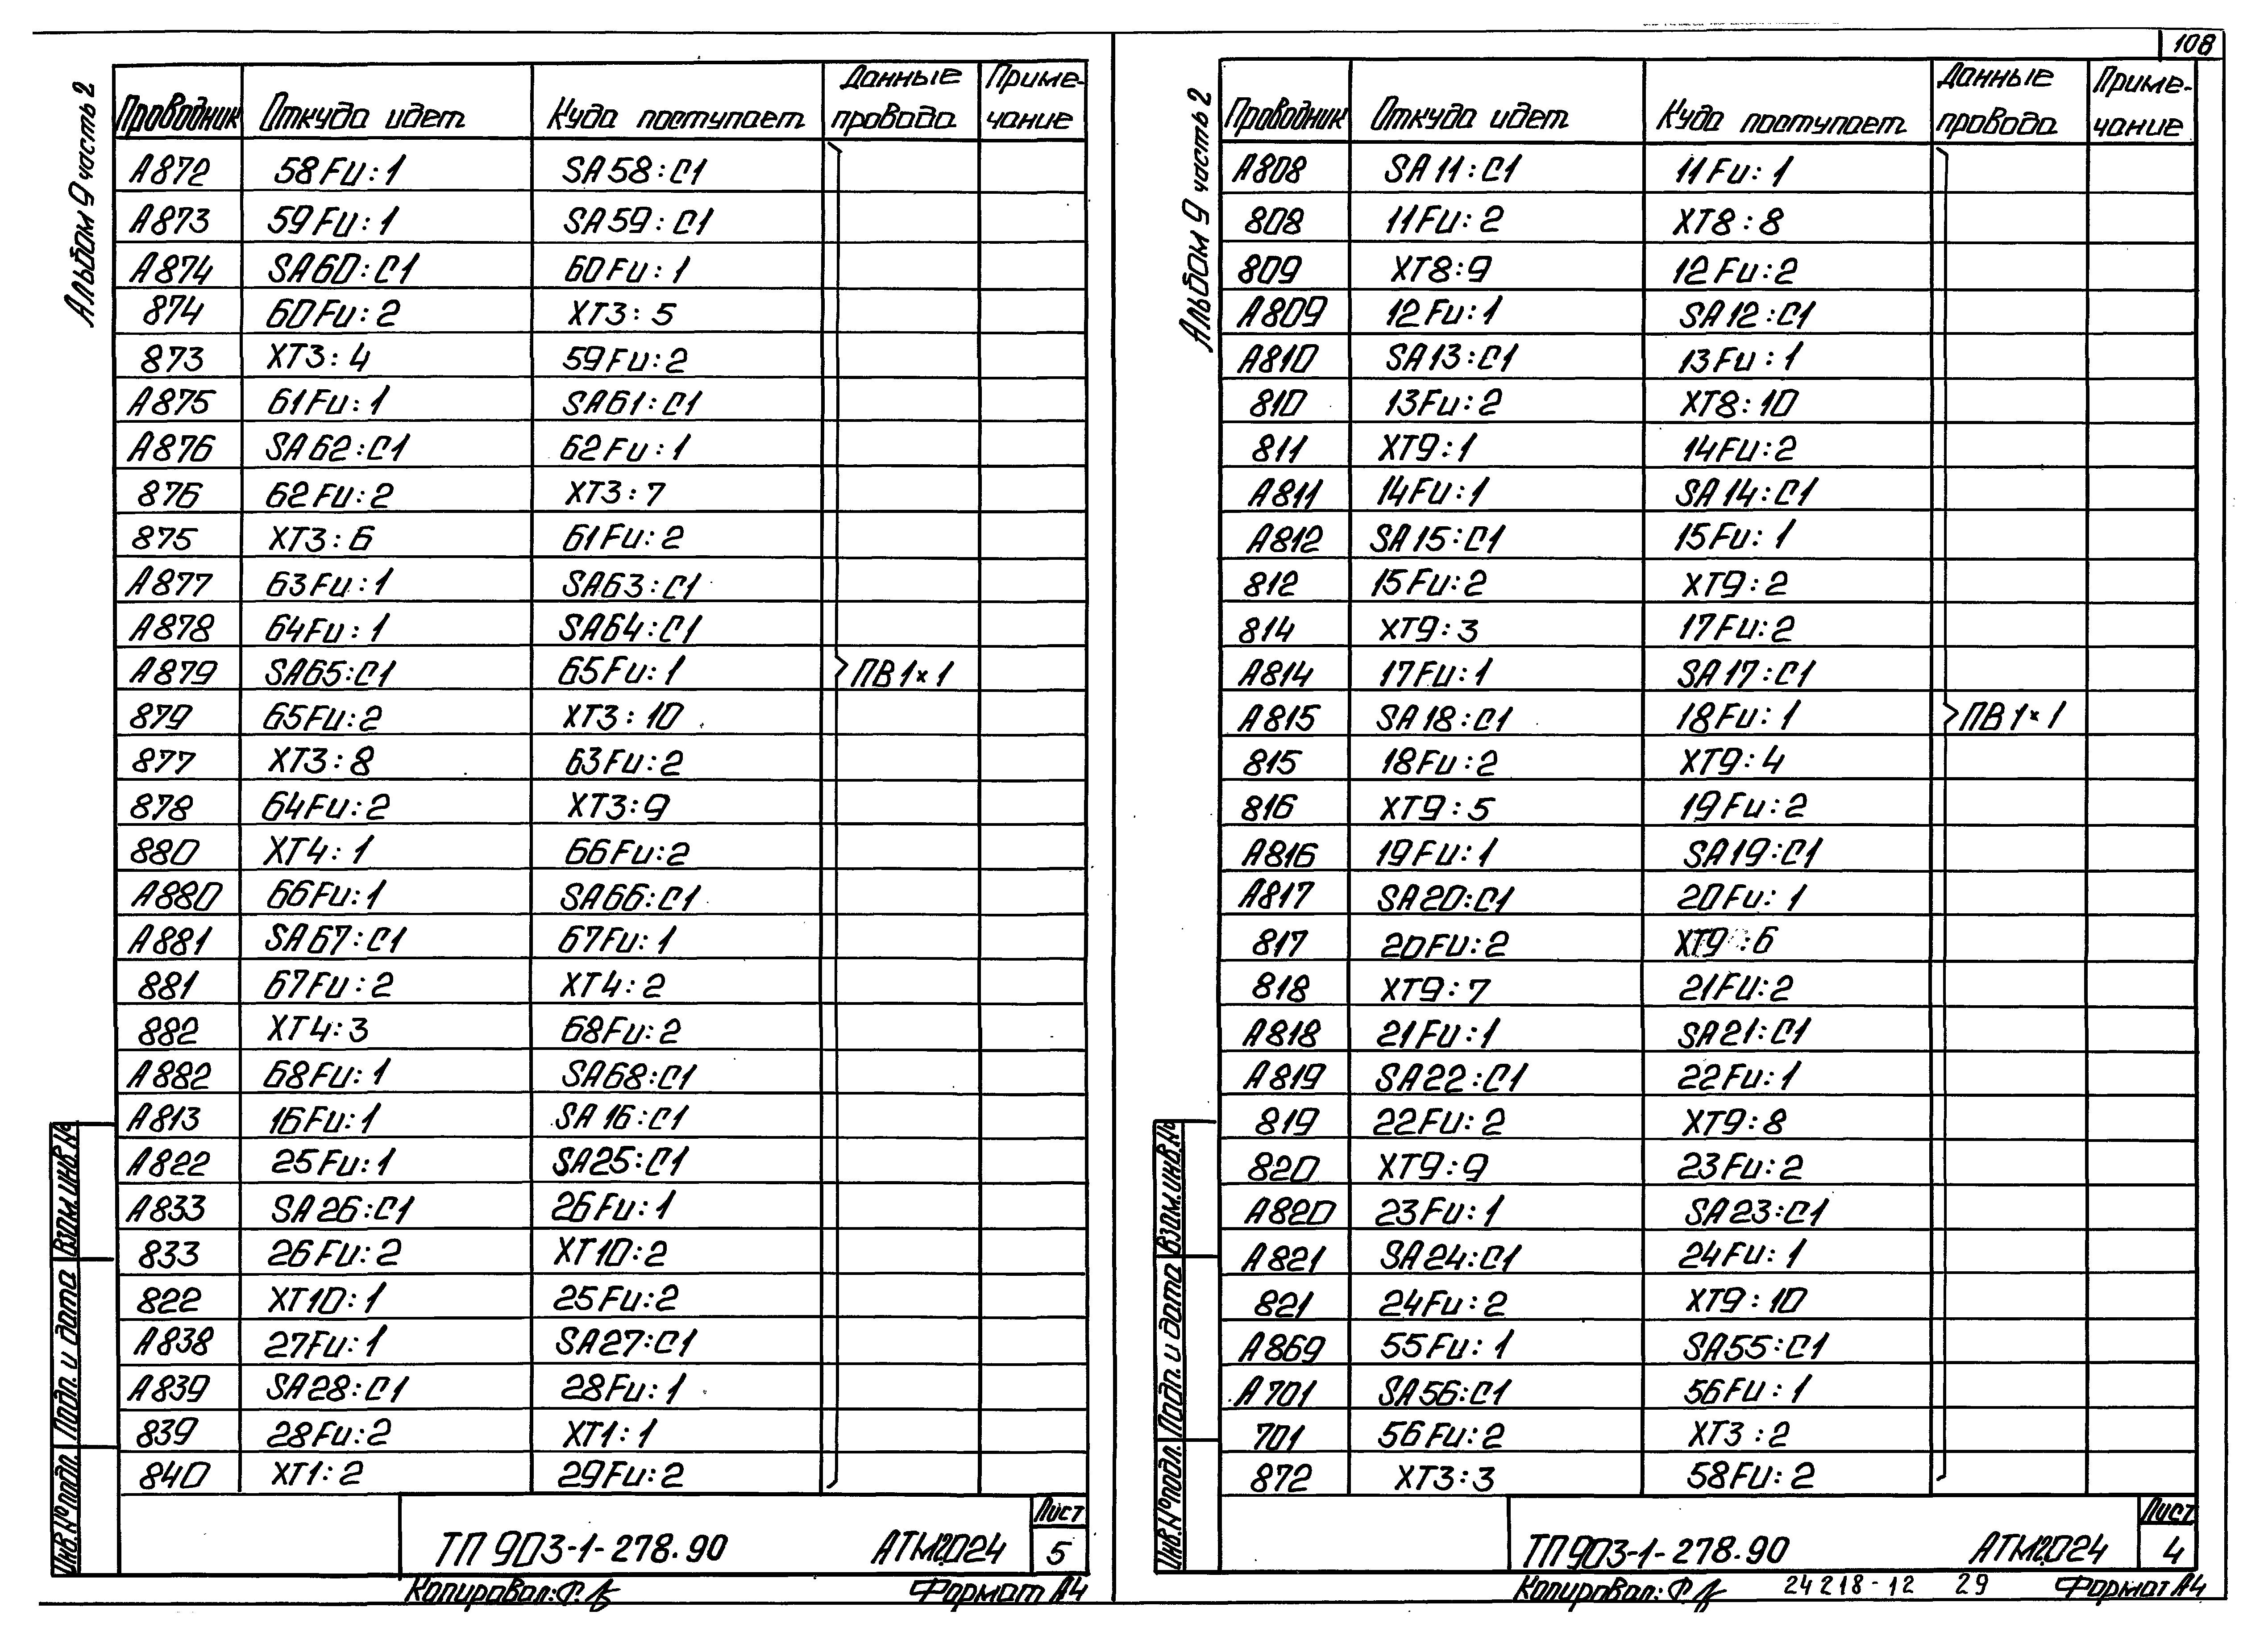 108
Альбом 9 часть 2
Проводник Откуда идет Куда поступает Данные провода Приме-чание
А872 58Fu:1 SA58:C1
А873 59Fu:1 SA59:C1
А874 SA60:C1 60Fu:1
874 60Fu:2 XT3:5
873 XT3:4 59Fu:2
А875 61Fu:1 SA61:C1
А876 SA62:C1 62Fu:1
876 62Fu:2 XT3:7
875 XT3:6 61Fu:2
А877 63Fu:1 SA63:C1
А878 64Fu:1 SA64:C1
А879 SA65:C1 65Fu:1 ПВ 1×1
879 65Fu:2 XT3:10
877 XT3:8 63Fu:2
878 64Fu:2 XT3:9
880 XT4:1 66Fu:2
А880 66Fu:1 SA66:C1
А881 SA67:C1 67Fu:1
881 67Fu:2 XT4:2
882 XT4:3 68Fu:2
А882 68Fu:1 SA68:C1
А813 16Fu:1 SA16:C1
А822 25Fu:1 SA25:C1
А833 SA26:C1 26Fu:1
833 26Fu:2 XT10:2
822 XT10:1 25Fu:2
А838 27Fu:1 SA27:C1
А839 SA28:C1 28Fu:1
839 28Fu:2 XT1:1
840 XT1:2 29Fu:2
Взам.инв.№
Подп. и дата
Инв.№подл.
ТП 903-1-278.90 АТМ2.024 Лист 5
Копировал: Формат А4
Альбом 9 часть 2
Проводник Откуда идет Куда поступает Данные провода Приме-чание
А808 SA11:C1 11Fu:1
808 11Fu:2 XT8:8
809 XT8:9 12Fu:2
А809 12Fu:1 SA12:C1
А810 SA13:C1 13Fu:1
810 13Fu:2 XT8:10
811 XT9:1 14Fu:2
А811 14Fu:1 SA14:C1
А812 SA15:C1 15Fu:1
812 15Fu:2 XT9:2
814 XT9:3 17Fu:2
А814 17Fu:1 SA17:C1
А815 SA18:C1 18Fu:1 ПВ 1×1
815 18Fu:2 XT9:4
816 XT9:5 19Fu:2
А816 19Fu:1 SA19:C1
А817 SA20:C1 20Fu:1
817 20Fu:2 XT9:6
818 XT9:7 21Fu:2
А818 21Fu:1 SA21:C1
А819 SA22:C1 22Fu:1
819 22Fu:2 XT9:8
820 XT9:9 23Fu:2
А820 23Fu:1 SA23:C1
А821 SA24:C1 24Fu:1
821 24Fu:2 XT9:10
А869 55Fu:1 SA55:C1
А701 SA56:C1 56Fu:1
701 56Fu:2 XT3:2
872 XT3:3 58Fu:2
Взам.инв.№
Подп. и дата
Инв.№подл.
ТП 903-1-278.90 АТМ2.024 Лист 4
Копировал: 24218-12 29 Формат А4